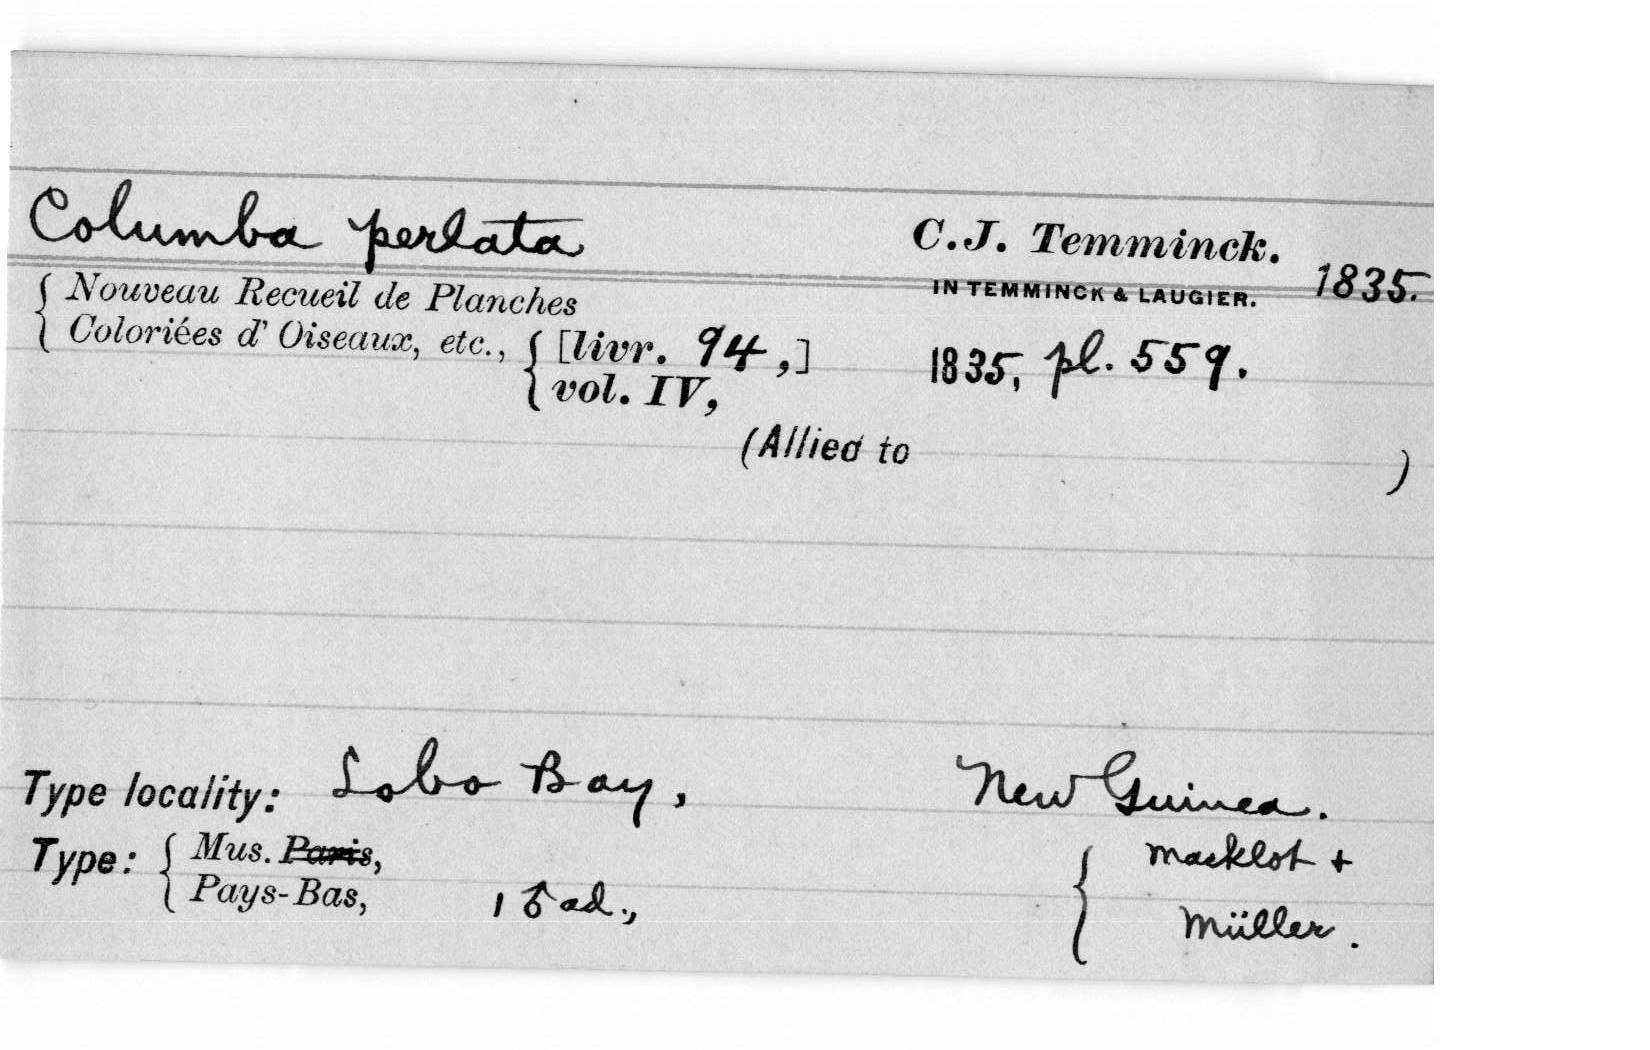 Columba perlata C.J. Temminck.
IN TEMMINCK & LAUGIER. 1835.
{ Nouveau Recueil de Planches
Coloriées d' Oiseaux, etc., { [livr. 94,] 1835, pl. 559.
vol. IV,
(Allied to )
Type locality: Lobo Bay, New Guinea.
Type: { Mus. Paris, { Macklot +
Pays-Bas, 1 ♂ ad., Müller.